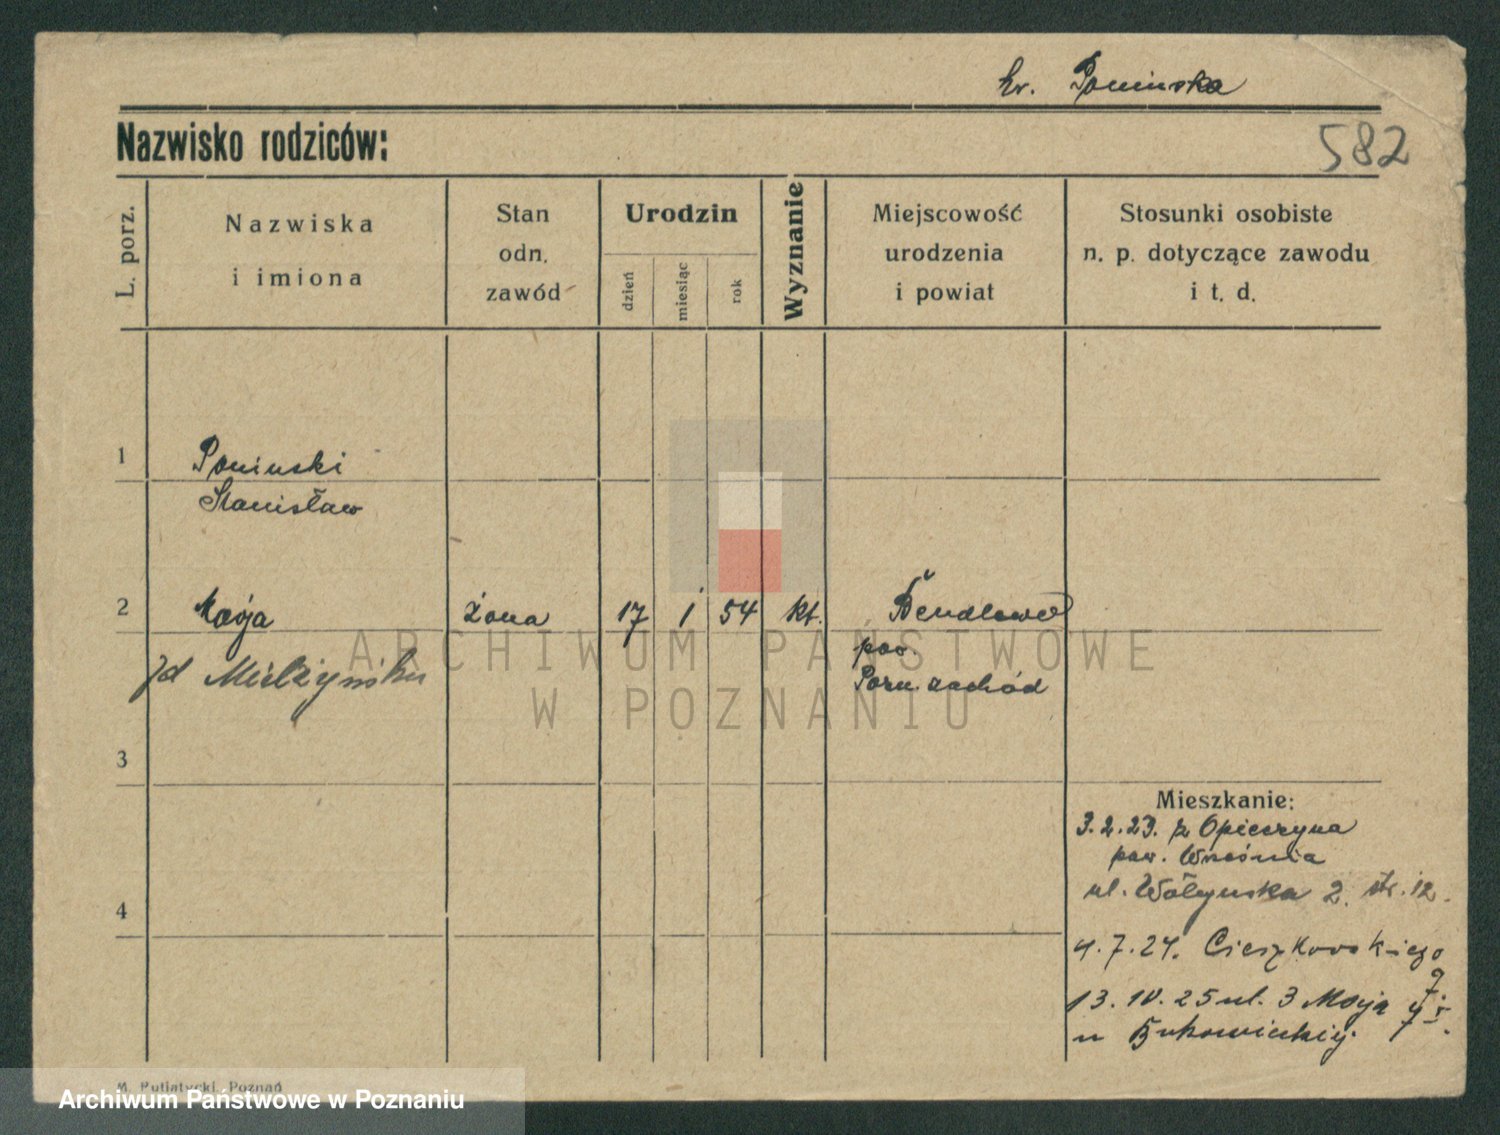 hr. Poninska
Nazwisko rodziców:
582
L. porz.
Nazwiska
i imiona
Stan
odn.
zawód
Urodzin
dzień
miesiąc
rok
Wyznanie
Miejscowość
urodzenia
i powiat
Stosunki osobiste
n. p. dotyczące zawodu
i t. d.
1
Poninski
Stanisław
2
żona
17
1
54
kt.
pow.
Pozn. zachód
3
Mieszkanie:
3.2.23. z Opieszyna
pow. Września
ul. Wołynska 2. 12.
4
4.7.24. Cieszkowskiego
9.
13. 10. 25 ul. 3 Maja
u Bukowieckiej.
M. Putiatycki, Poznań
ARCHIWUM PAŃSTWOWE
W POZNANIU
Archiwum Państwowe w Poznaniu